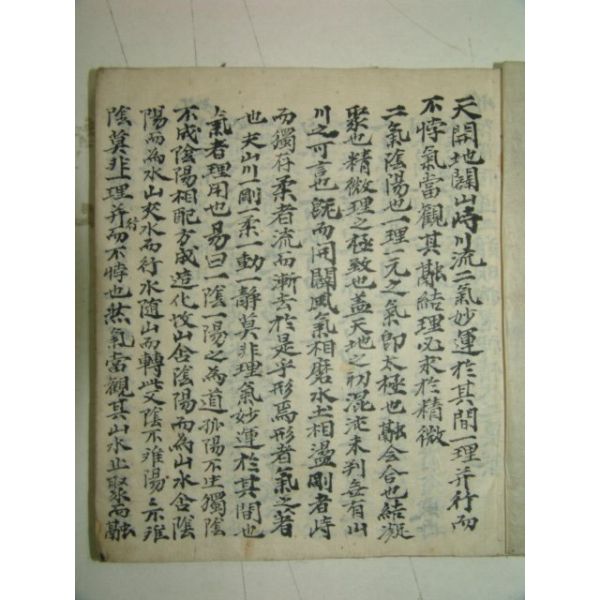 天開地闢山峙川流二氣妙運於其間一理并行而
不悖氣當觀其融結理必求於精微
二氣陰陽也一理一元之氣卽太極也融會合也結凝
聚也精微理之極致也盖天地之初混沌未判無有山
川之可言也旣而開闢風氣相磨水土相盪剛者峙
而獨存柔者流而漸去於是乎形焉形者氣之著
也夫山川一剛一柔一動一靜莫非理氣妙運於其間也
氣者理用也易曰一陰一陽之爲道孤陽不生獨陰
不成陰陽相配方成造化故山舍陰陽而爲山水舍陰
陽而爲水山夾水而行水随山而轉此又陰不离陽陽亦不离
陰莫非理并行而不悖也然氣當觀其山水止聚而融